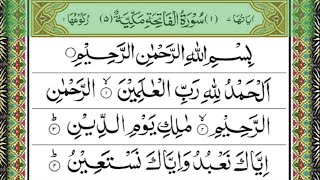 اٰیَاتُهَا ٧ (١) سُوْرَةُ الْفَاتِحَةِ مَكِّیَّةٌ (٥) رُكُوْعُهَا ١
بِسْمِ اللّٰهِ الرَّحْمٰنِ الرَّحِیْمِ
اَلْحَمْدُ لِلّٰهِ رَبِّ الْعٰلَمِیْنَ ۙ١ الرَّحْمٰنِ
الرَّحِیْمِ ۙ٢ مٰلِكِ یَوْمِ الدِّیْنِ ؕ٣
اِیَّاكَ نَعْبُدُ وَاِیَّاكَ نَسْتَعِیْنُ ؕ٤